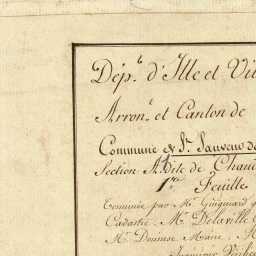 Dép.t d'Ille et Vil
Arron.t et Canton de
Commune et St. Sauveur de
Section A. dite de Chau
1.re Feuille
Terminée par Mr Guignard g
Cadastre Mr Delaville
Mr Maire